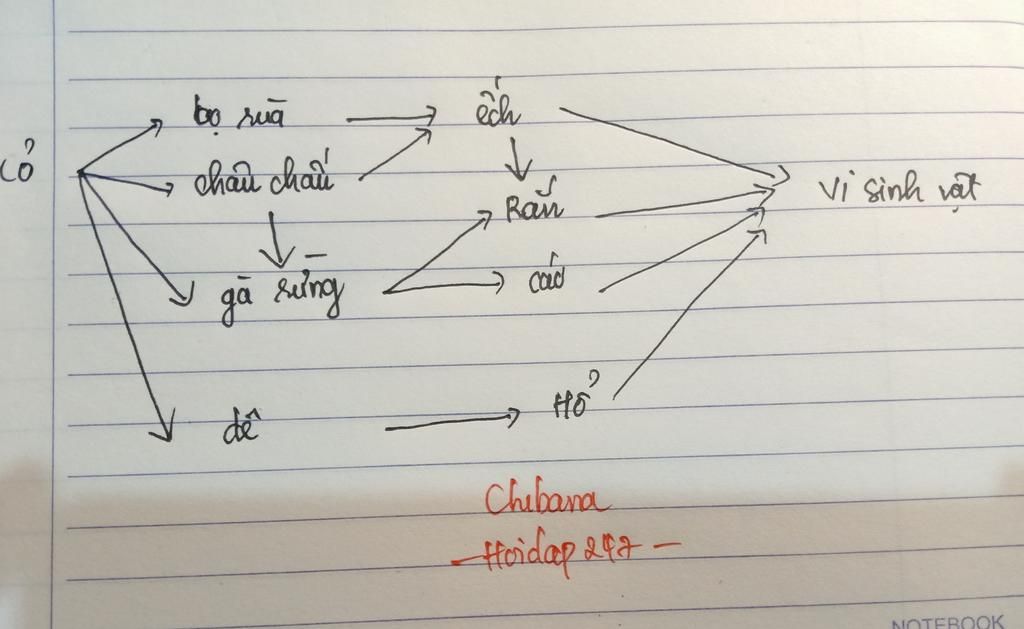 bọ rùa ếch
cỏ châu chấu Rắn vi sinh vật
gà rừng cáo
dê Hổ
Chibana
- Hoidap 247 -
NOTEBOOK